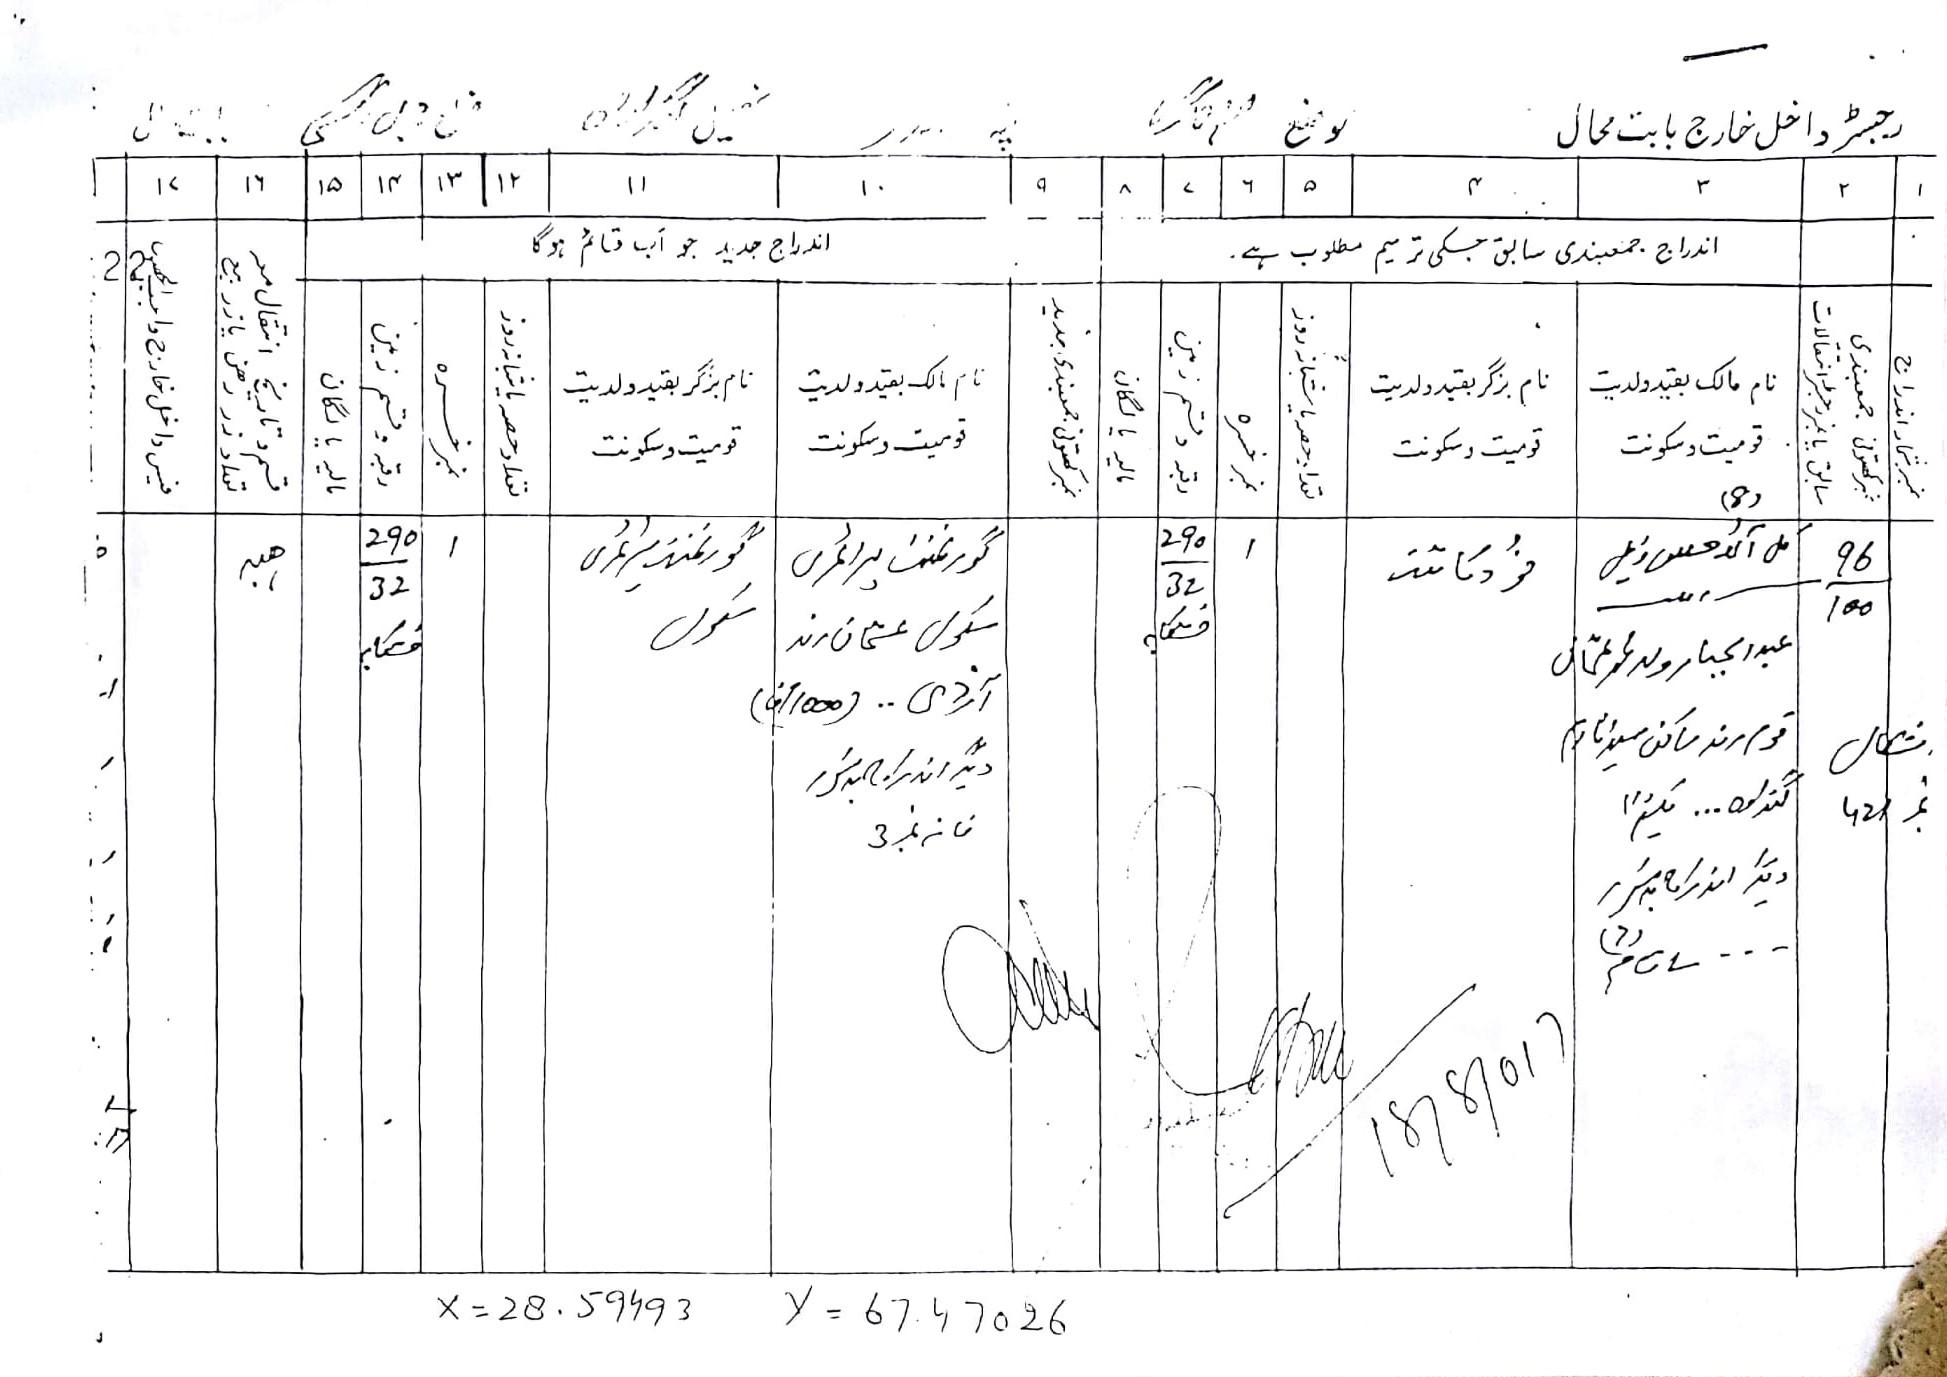 رجسٹر داخل خارج بابت محال موضع پٹہ تحصیل گنداوہ ضلع جھل مگسی
۱ ۲ ۳ ۴ ۵ ۶ ۷ ۸ ۹ ۱۰ ۱۱ ۱۲ ۱۳ ۱۴ ۱۵ ۱۶ ۱۷
اندراج جمعبندی سابق جسکی ترمیم مطلوب ہے۔
اندراج جدید جو اب قائم ہوگا
22
نمبر شمار اندراج
نمبر کھتونی جمعبندی
سابق یا نمبر رجسٹر انتقالات
نام مالک بقید ولدیت
قومیت و سکونت
نام بزگر بقید ولدیت
قومیت و سکونت
تعداد حصہ یا شبانہ روز
نمبر خسرہ
رقبہ و قسم زمین
مالیہ یا لگان
نمبر کھتونی جمعبندی جدید
نام مالک بقید ولدیت
قومیت و سکونت
نام بزگر بقید ولدیت
قومیت و سکونت
تعداد حصہ یا شبانہ روز
نمبر خسرہ
رقبہ و قسم زمین
مالیہ یا لگان
قسم و تاریخ انتقال معہ
تعداد زر رھن یا زر بیع
فیس داخل خارج واجب
96
100
انتقال
نمبر 421
(8)
عبدالجبار ولد محمد عثمان
قوم رند ساکن
گنداوہ ...
دیگر اندراج بدستور
(7)
خود کاشت
1
290
32
خشکابہ
گورنمنٹ پرائمری
سکول عثمان رند
آزادی .. (1000
دیگر اندراج بدستور
خانہ نمبر 3
گورنمنٹ پرائمری
سکول
1
290
32
خشکابہ
ھبہ
18/8/017
X = 28.59493 Y = 67.47026